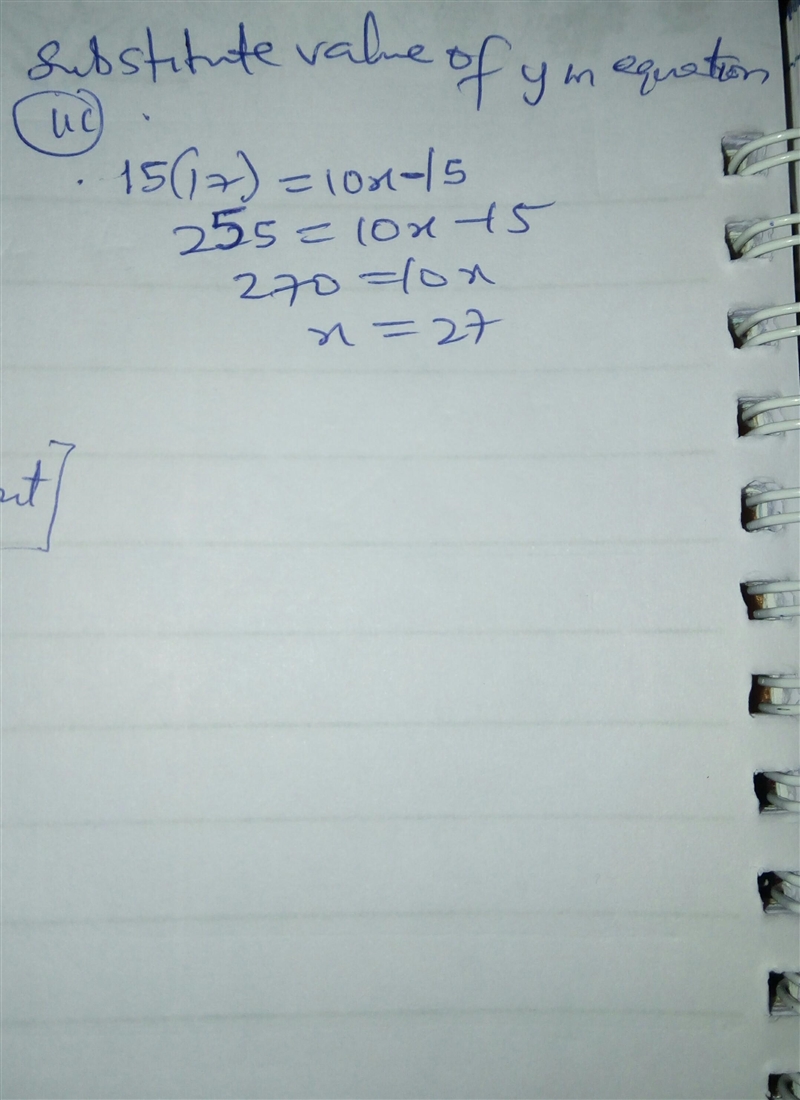 Substitute value of y in equation
iii
15(17) = 10x - 15
255 = 10x - 15
270 = 10x
x = 27